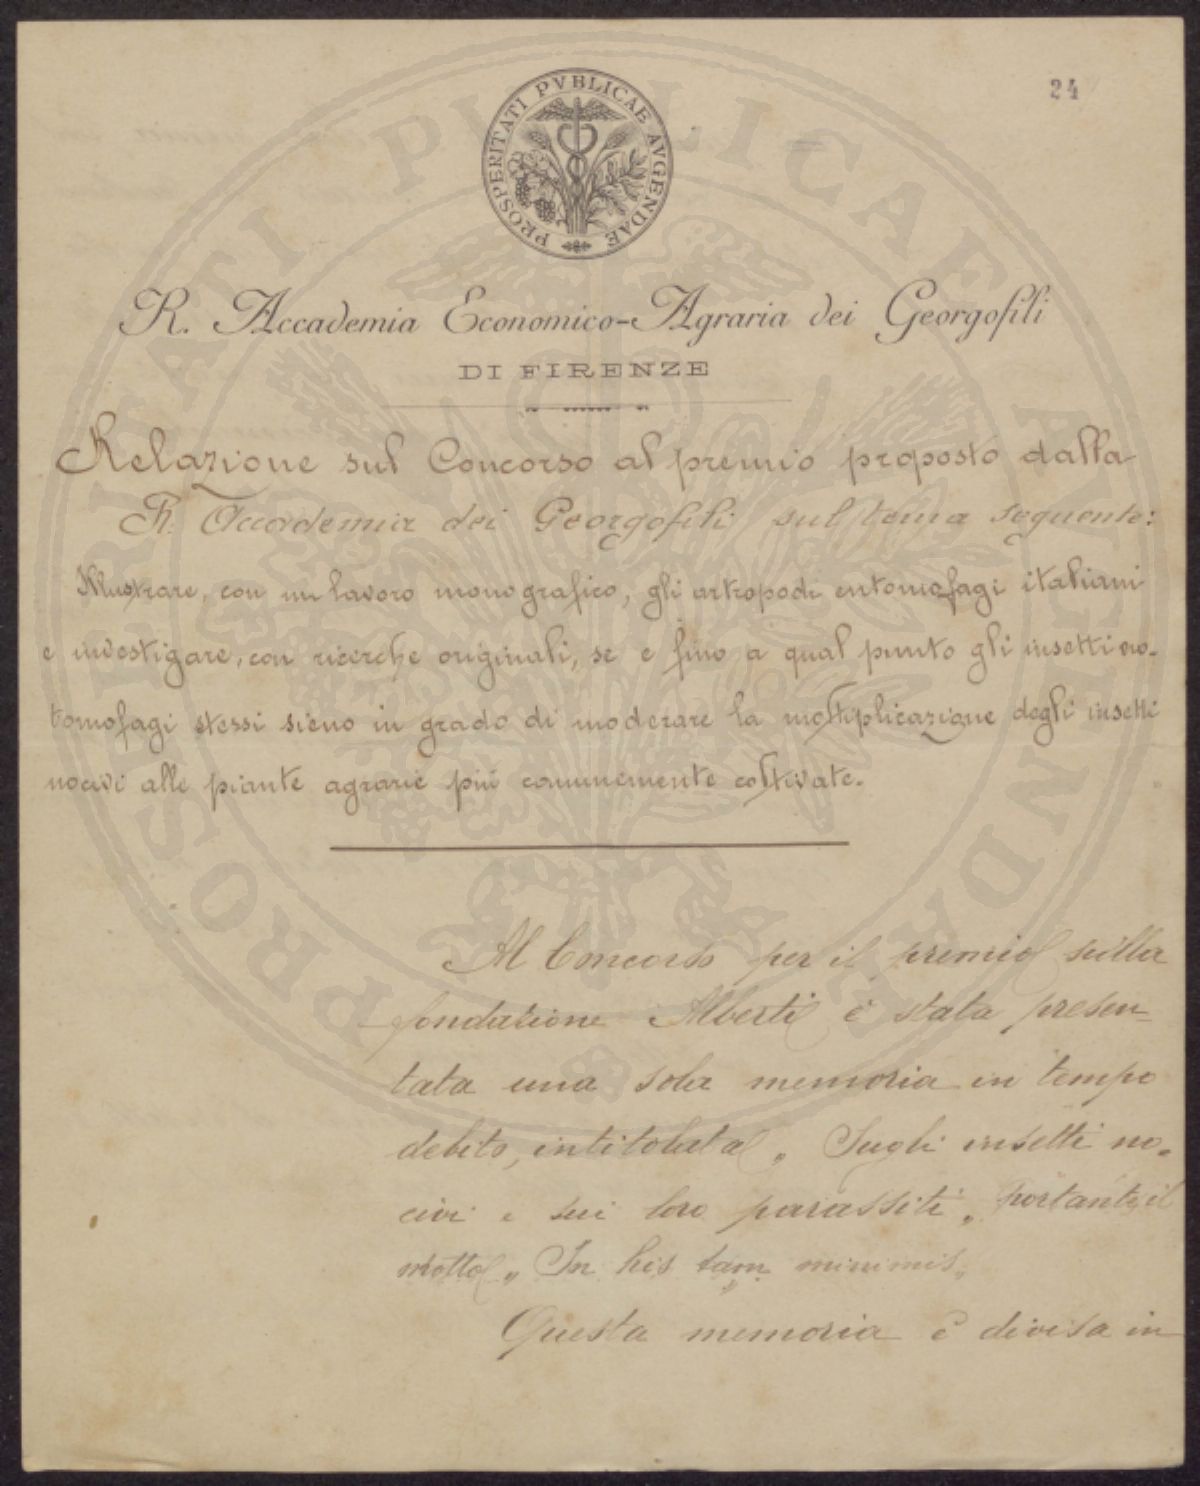 24
PROSPERITATI PVBLICAE AVGENDAE
R. Accademia Economico-Agraria dei Georgofili
DI FIRENZE
Relazione sul Concorso al premio proposto dalla
R. Accademia dei Georgofili sul tema seguente:
Illustrare, con un lavoro monografico, gli artropodi entomofagi italiani
e investigare, con ricerche originali, se e fino a qual punto gli insetti en-
tomofagi stessi sieno in grado di moderare la moltiplicazione degli insetti
nocivi alle piante agrarie più comunemente coltivate.
Al Concorso per il premio sulla
fondazione Alberti è stata presen-
tata una sola memoria in tempo
debito, intitolata „ Sugli insetti no-
civi e sui loro parassiti „ portante il
motto „ In his tam minimis „
Questa memoria è divisa in
PROSPERITATI PUBLICAE AUGENDAE